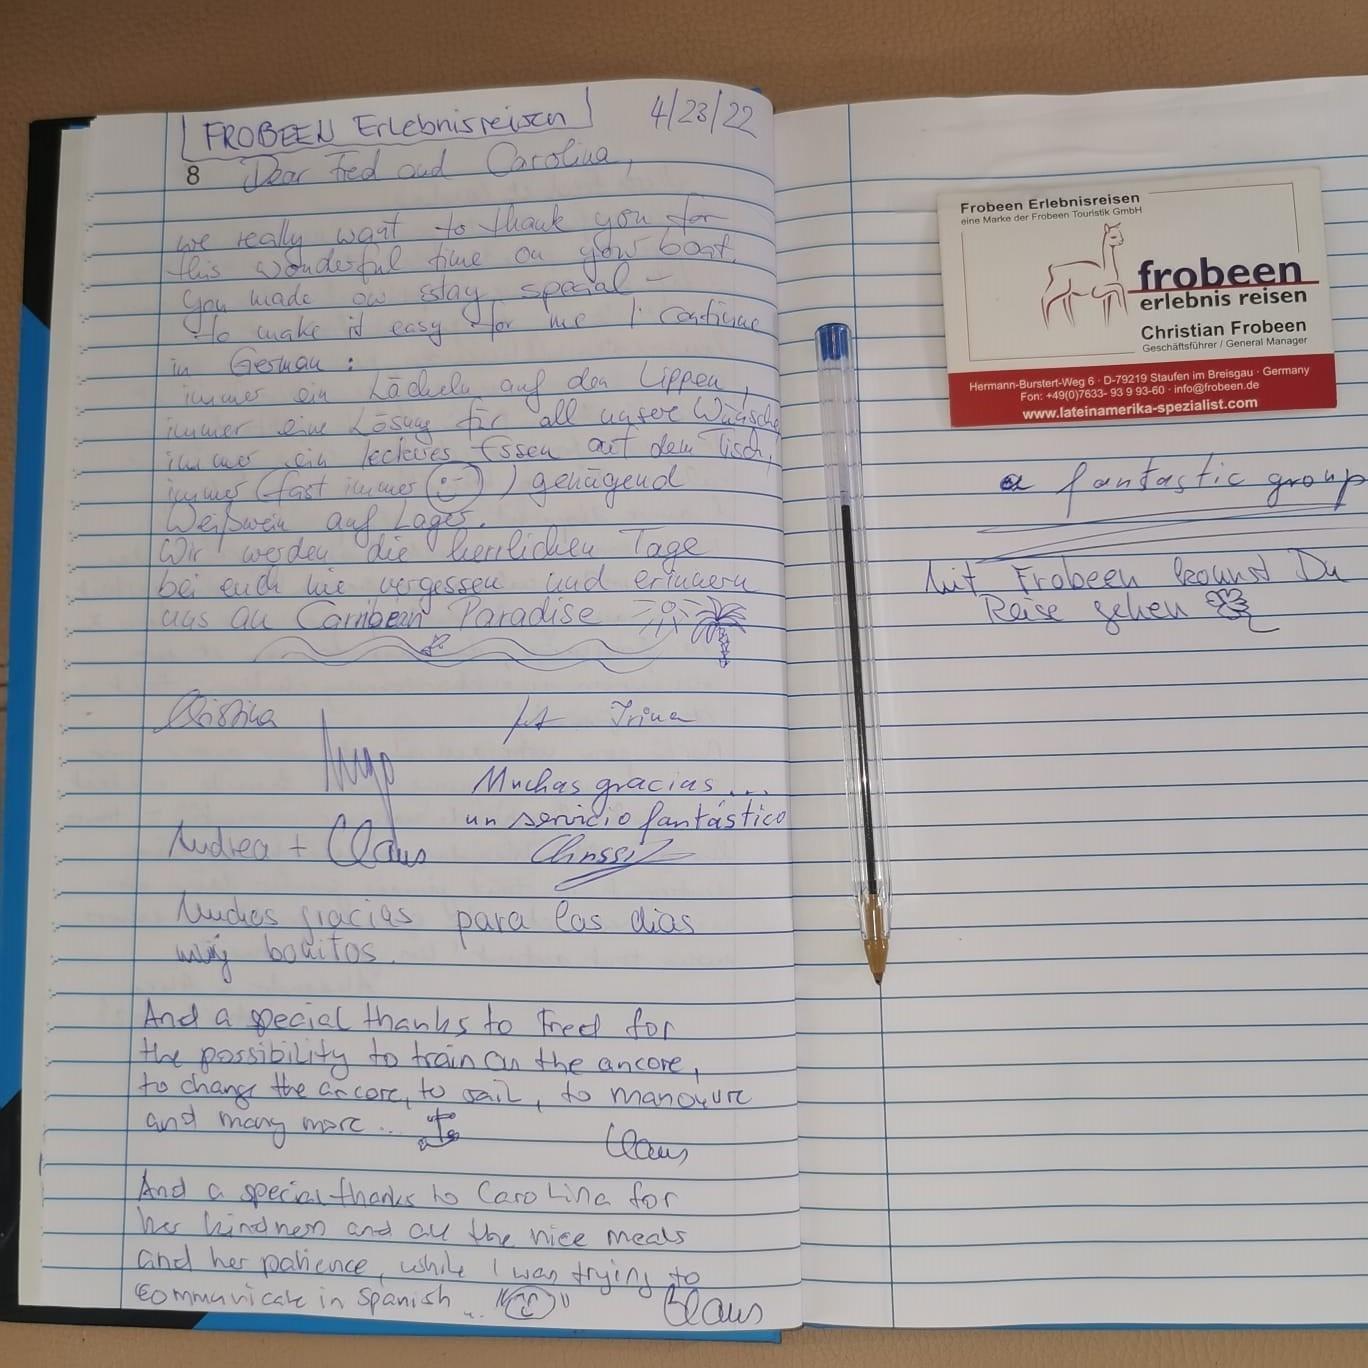 FROBEEN Erlebnisreisen
4/23/22
8
Dear Fred and Carolina,
we really want to thank you for
this wonderful time on your boat.
You made ow sstay special –
to make it easy for me I continue
in German:
immer ein Lächeln auf den Lippen,
immer eine Lösung für all unsere Wünsche
immer ein leckeres Essen auf dem Tisch,
immer (fast immer ) genügend
Weißwein auf Lager.
Wir werden die herrlichen Tage
bei euch nie vergessen und erinnern
uns an Carribean Paradise
Christina
Irina
Hugo
Muchas gracias...
un servicio fantástico
Andrea + Claus
Chrissi
Muchas gracias para las dias
muy bonitos.
And a special thanks to Fred for
the possibility to train on the ancore,
to change the ancore, to sail, to manovure
and many more...
Claus
And a special thanks to Carolina for
her kindness and all the nice meals
and her patience, while I was trying to
communicate in Spanish...
Claus
Frobeen Erlebnisreisen
eine Marke der Frobeen Touristik GmbH
frobeen
erlebnis reisen
Christian Frobeen
Geschäftsführer / General Manager
Hermann-Burstert-Weg 6 · D-79219 Staufen im Breisgau · Germany
Fon: +49(0)7633- 93 9 93-60 · info@frobeen.de
www.lateinamerika-spezialist.com
a fantastic group
Mit Frobeen kannst Du
Reise gehen